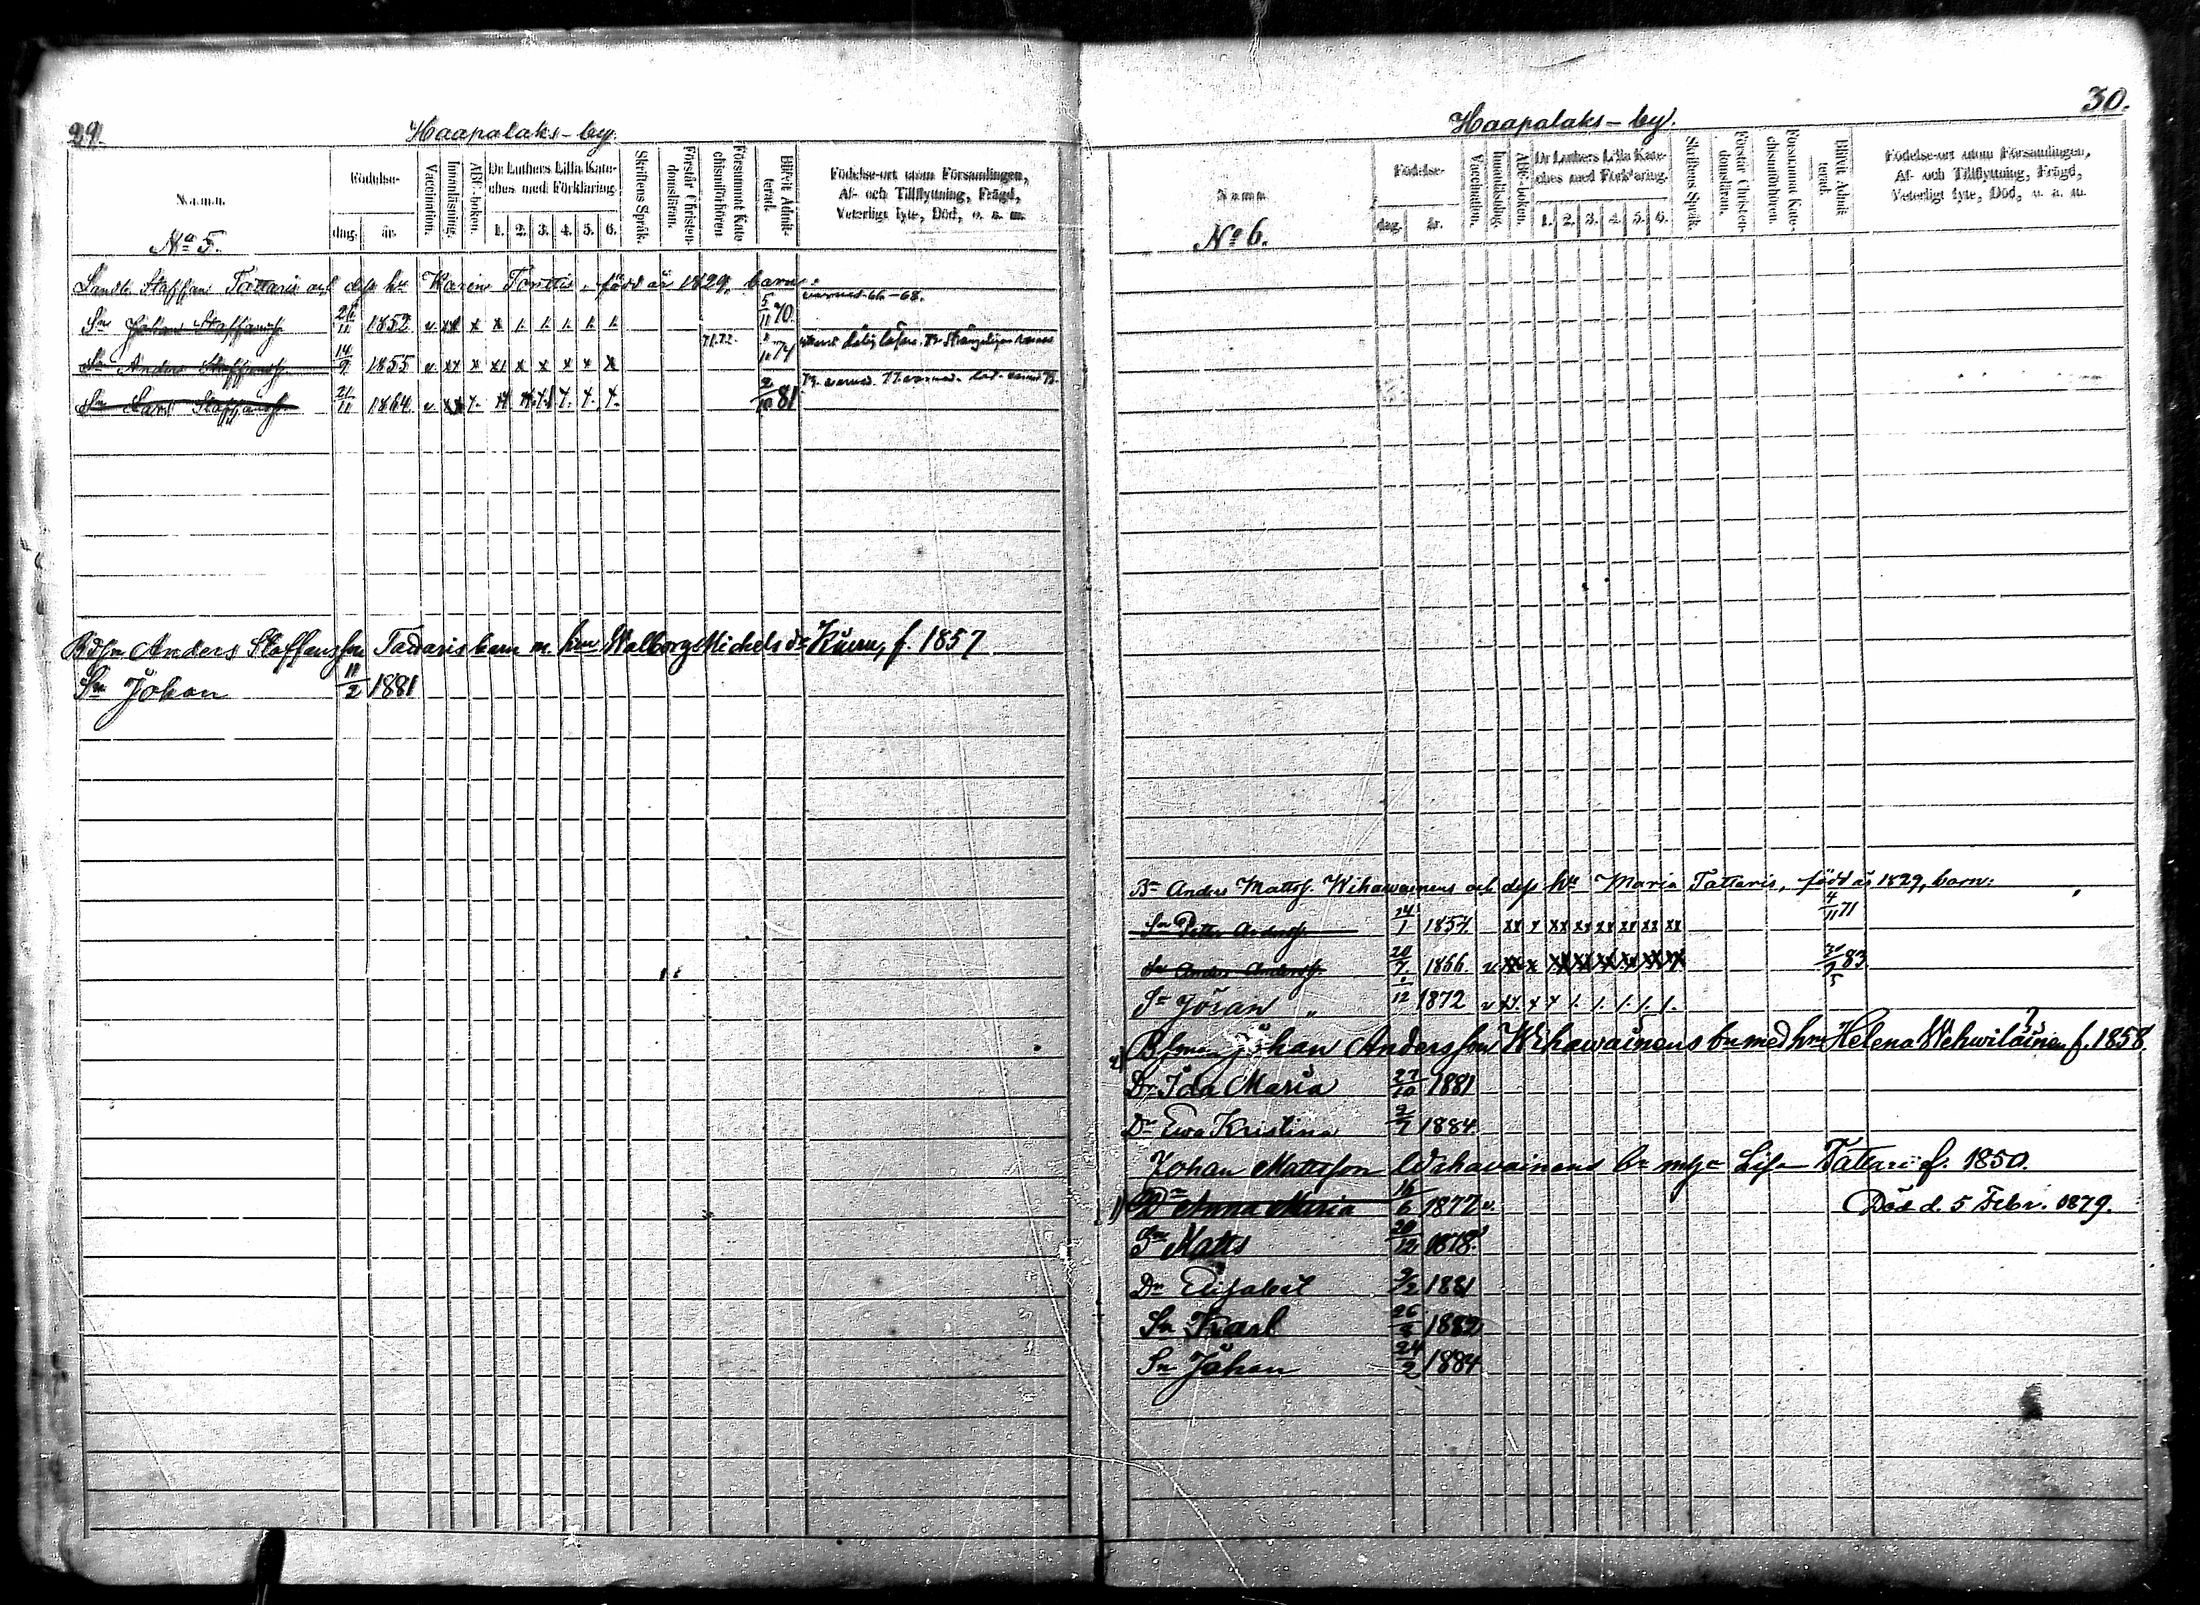 29.
Haapalaks-by.
Namn.
Födelse-
dag. år.
Vaccination.
Innanläsning.
ABC-boken.
Dr Luthers Lilla Kateches med Förklaring.
1. 2. 3. 4. 5. 6.
Skriftens Språk.
Förstår Christendomsläran.
Försummat Katechismiförhören
Blifvit Admitterad.
Födelse-ort utom Församlingen,
Af- och Tillflyttning, Frägd,
Veterligt lyte, Död, o. s. m.
No 5.
Staffan Tattaris och dess hu Karin född år 1829, barn:
Sn Johan Staffanss. 26/11 1852 v. xx x x 1. 1. 1. 1. 1. 5/11 70.
Sn Anders Staffanss. 14/9 1855 v. xx x x1 x x x x x 71.72. 74
Sn Lars Staffanss. 21/11 1864 v. 2/10 81
Anders Staffansson Tattaris barn m. hu Walborg Michelsdr f. 1857
Sn Johan 11/2 1881
30.
Haapalaks-by.
Namn
Födelse-
dag. år.
Vaccination.
Innanläsning.
ABC-boken.
Dr Luthers Lilla Kateches med Förklaring.
1. 2. 3. 4. 5. 6.
Skriftens Språk.
Förstår Christendomsläran.
Försummat Katechismiförhören.
Blifvit Admitterad.
Födelse-ort utom Församlingen,
Af- och Tillflyttning, Frägd,
Veterligt lyte, Död, o. s. m.
No 6.
Bn Anders Mattss. Wihawainens och dess hu Maria Tattaris, född år 1829, barn:
Sn Petter Anderss. 14/1 1857 xx x xx xx xx xx xx xx 4/11 71
Sn Anders Anderss. 20/7 1866 v. xx x xx xx xx xx xx xx 83.
Sn Göran " /12 1872 v xx. x x 1. 1. 1. 1. 1.
2) Johan Andersson Wihawainens bn med hu Helena Wehwiläinen f. 1858.
Dr Ida Maria 27/10 1881
Dr Ewa Kristina 2/7 1884.
Johan Mattsson Wihavainens bn Lisa Tattari f. 1850.
1) Dr Anna Maria 16/6 1877 v. Död d. 5 Febr. 1879.
Sn Matts 20/12 1878.
Dr Elisabet 9/2 1881
Sn Karl 26/ 1882
Sn Johan 24/2 1884